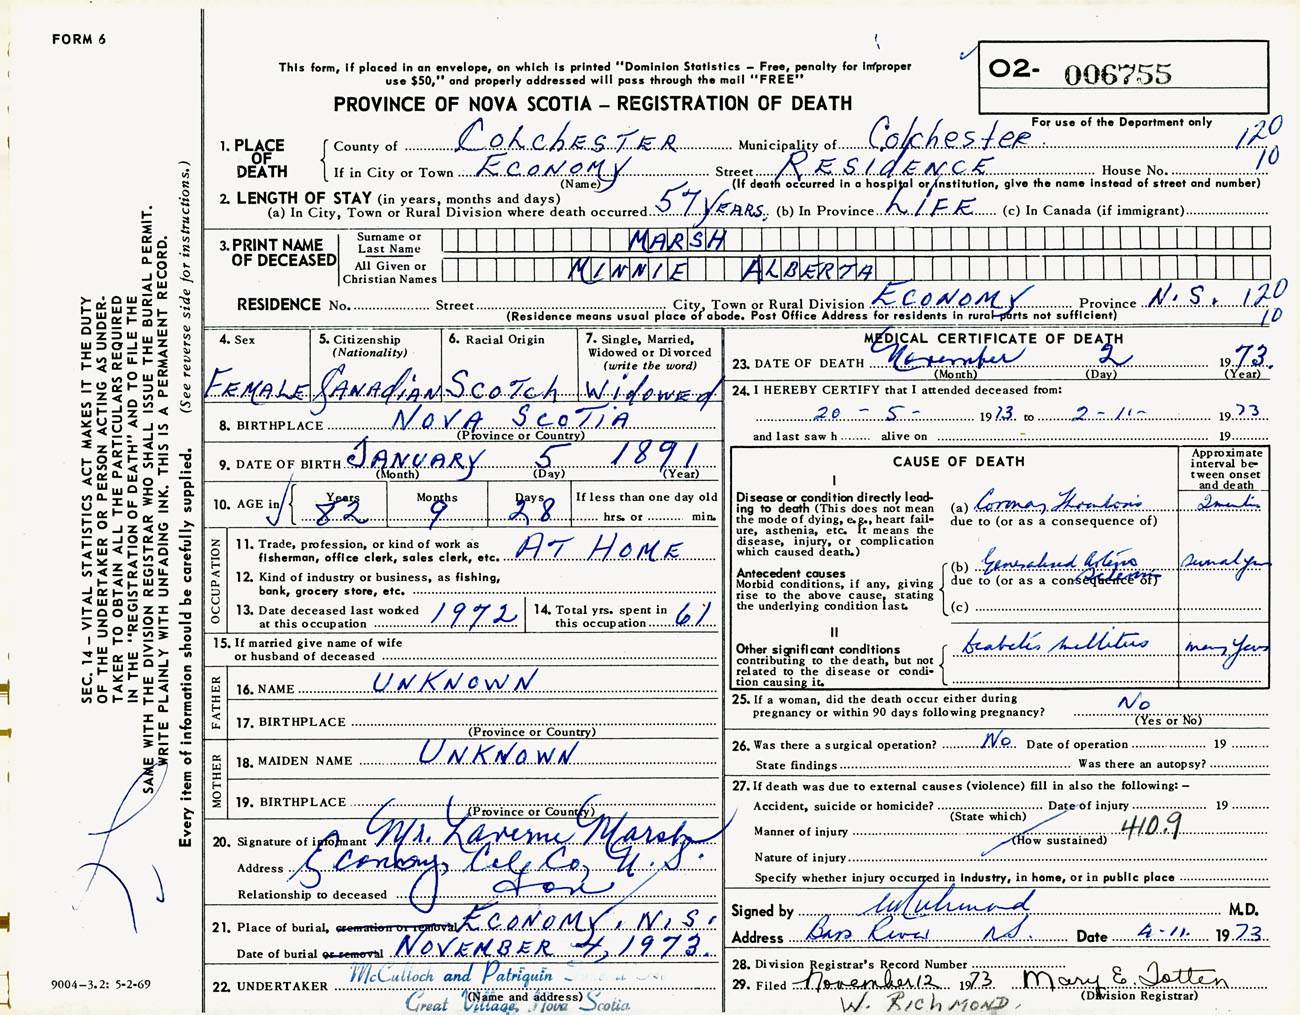 FORM 6
This form, if placed in an envelope, on which is printed "Dominion Statistics – Free, penalty for improper
use $50," and properly addressed will pass through the mail "FREE"
O2- 006755
For use of the Department only
PROVINCE OF NOVA SCOTIA – REGISTRATION OF DEATH
120
10
1. PLACE OF DEATH
County of COLCHESTER Municipality of Colchester
If in City or Town ECONOMY Street RESIDENCE House No.
(Name) (If death occurred in a hospital or institution, give the name instead of street and number)
2. LENGTH OF STAY (in years, months and days)
(a) In City, Town or Rural Division where death occurred 57 YEARS. (b) In Province LIFE (c) In Canada (if immigrant)
3. PRINT NAME OF DECEASED
Surname or Last Name MARSH
All Given or Christian Names MINNIE ALBERTA
RESIDENCE No. Street City, Town or Rural Division ECONOMY Province N.S. 120
(Residence means usual place of abode. Post Office Address for residents in rural parts not sufficient) 10
4. Sex FEMALE
5. Citizenship (Nationality) CANADIAN
6. Racial Origin SCOTCH
7. Single, Married, Widowed or Divorced (write the word) WIDOWED
8. BIRTHPLACE NOVA SCOTIA
(Province or Country)
9. DATE OF BIRTH JANUARY 5 1891
(Month) (Day) (Year)
10. AGE in Years 82 Months 9 Days 28 If less than one day old
hrs. or min.
OCCUPATION
11. Trade, profession, or kind of work as
fisherman, office clerk, sales clerk, etc. AT HOME
12. Kind of industry or business, as fishing,
bank, grocery store, etc.
13. Date deceased last worked
at this occupation 1972
14. Total yrs. spent in
this occupation 61
15. If married give name of wife
or husband of deceased
FATHER
16. NAME UNKNOWN
17. BIRTHPLACE
(Province or Country)
MOTHER
18. MAIDEN NAME UNKNOWN
19. BIRTHPLACE
(Province or Country)
20. Signature of informant Mr. Laverne Marsh
Address Economy, Col. Co, N.S.
Relationship to deceased Son
21. Place of burial, cremation or removal ECONOMY, N.S.
Date of burial or removal NOVEMBER 4, 1973.
22. UNDERTAKER McCulloch and Patriquin
(Name and address)
Great Village, Nova Scotia
MEDICAL CERTIFICATE OF DEATH
23. DATE OF DEATH November 2 1973.
(Month) (Day) (Year)
24. I HEREBY CERTIFY that I attended deceased from:
20 - 5 - 1973 to 2-11- 1973
and last saw h alive on 19
CAUSE OF DEATH
Approximate interval between onset and death
I
Disease or condition directly lead-
ing to death (This does not mean
the mode of dying, e.g., heart fail-
ure, asthenia, etc. It means the
disease, injury, or complication
which caused death.)
(a) Coronary Thrombosis
due to (or as a consequence of)
Antecedent causes
Morbid conditions, if any, giving
rise to the above cause, stating
the underlying condition last.
(b) Generalised Arterio
due to (or as a consequence of)
(c)
II
Other significant conditions
contributing to the death, but not
related to the disease or condi-
tion causing it.
Diabetes mellitus many years
25. If a woman, did the death occur either during
pregnancy or within 90 days following pregnancy? No
(Yes or No)
26. Was there a surgical operation? No. Date of operation 19
State findings Was there an autopsy?
27. If death was due to external causes (violence) fill in also the following: –
Accident, suicide or homicide? Date of injury 19
(State which)
Manner of injury 410.9
(How sustained)
Nature of injury
Specify whether injury occurred in industry, in home, or in public place
Signed by W Richmond M.D.
Address Bass River NS. Date 4-11. 1973.
28. Division Registrar's Record Number
29. Filed November 12 1973 Mary E. Totten
(Division Registrar)
W. RICHMOND.
SEC. 14 – VITAL STATISTICS ACT MAKES IT THE DUTY
OF THE UNDERTAKER OR PERSON ACTING AS UNDER-
TAKER TO OBTAIN ALL THE PARTICULARS REQUIRED
IN THE "REGISTRATION OF DEATH" AND TO FILE THE
SAME WITH THE DIVISION REGISTRAR WHO SHALL ISSUE THE BURIAL PERMIT.
WRITE PLAINLY WITH UNFADING INK. THIS IS A PERMANENT RECORD.
Every item of information should be carefully supplied. (See reverse side for instructions.)
9004-3.2: 5-2-69